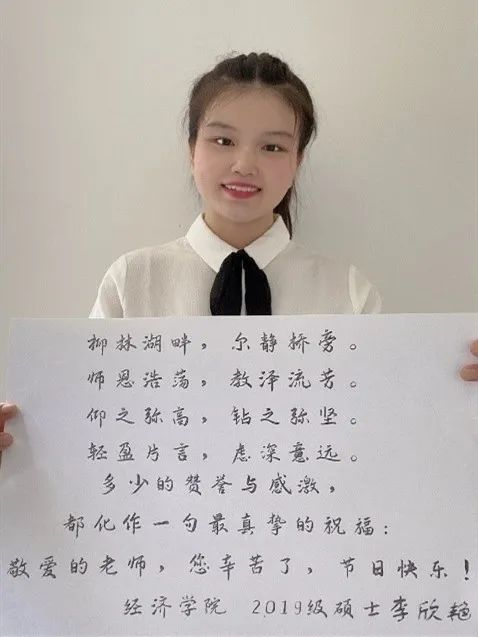 柳林湖畔，尔静桥旁。
师恩浩荡，教泽流芳。
仰之弥高，钻之弥坚。
轻盈片言，虑深意远。
多少的赞誉与感激，
都化作一句最真挚的祝福：
敬爱的老师，您辛苦了，节日快乐！
经济学院 2019级硕士李欣艳